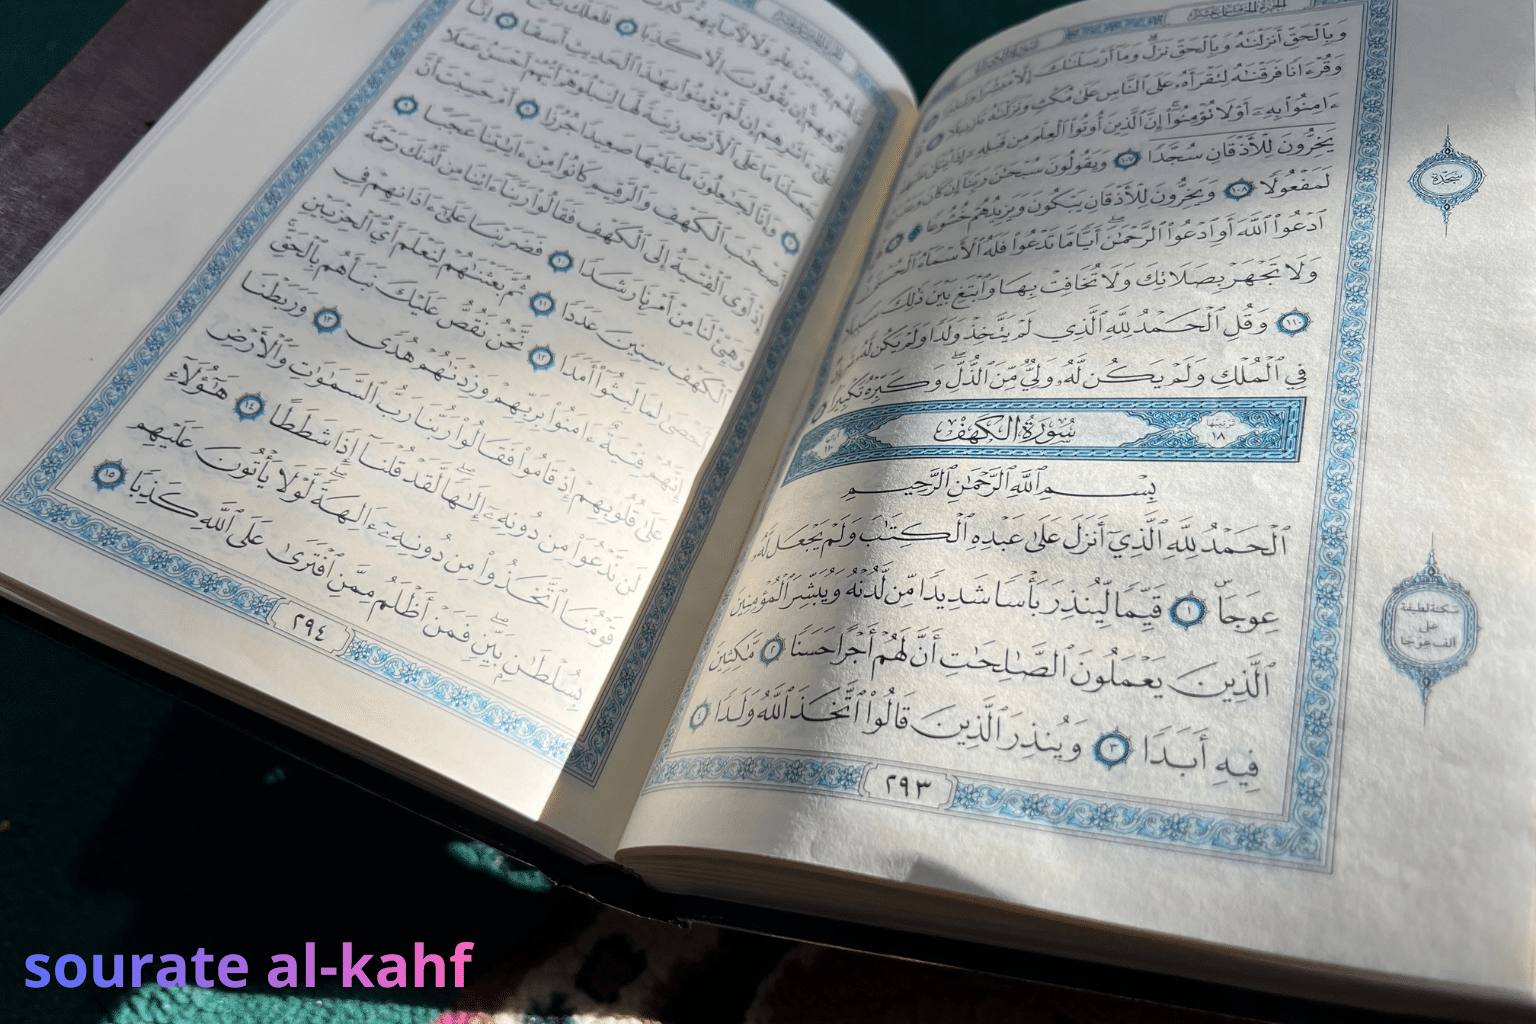 وَبِٱلْحَقِّ أَنزَلْنَٰهُ وَبِٱلْحَقِّ نَزَلَ وَمَآ أَرْسَلْنَٰكَ إِلَّا مُبَشِّرًا وَنَذِيرًا
وَقُرْءَانًا فَرَقْنَٰهُ لِتَقْرَأَهُۥ عَلَى ٱلنَّاسِ عَلَىٰ مُكْثٍ وَنَزَّلْنَٰهُ تَنزِيلًا
ءَامِنُوا۟ بِهِۦٓ أَوْ لَا تُؤْمِنُوٓا۟ إِنَّ ٱلَّذِينَ أُوتُوا۟ ٱلْعِلْمَ مِن قَبْلِهِۦٓ إِذَا يُتْلَىٰ عَلَيْهِمْ
يَخِرُّونَ لِلْأَذْقَانِ سُجَّدًا ١٠٧ وَيَقُولُونَ سُبْحَٰنَ رَبِّنَآ إِن كَانَ وَعْدُ رَبِّنَا
لَمَفْعُولًا ١٠٨ وَيَخِرُّونَ لِلْأَذْقَانِ يَبْكُونَ وَيَزِيدُهُمْ خُشُوعًا
ٱدْعُوا۟ ٱللَّهَ أَوِ ٱدْعُوا۟ ٱلرَّحْمَٰنَ أَيًّا مَّا تَدْعُوا۟ فَلَهُ ٱلْأَسْمَآءُ ٱلْحُسْنَىٰ
وَلَا تَجْهَرْ بِصَلَاتِكَ وَلَا تُخَافِتْ بِهَا وَٱبْتَغِ بَيْنَ ذَٰلِكَ سَبِيلًا
١١٠ وَقُلِ ٱلْحَمْدُ لِلَّهِ ٱلَّذِي لَمْ يَتَّخِذْ وَلَدًا وَلَمْ يَكُن لَّهُۥ شَرِيكٌ
فِي ٱلْمُلْكِ وَلَمْ يَكُن لَّهُۥ وَلِيٌّ مِّنَ ٱلذُّلِّ وَكَبِّرْهُ تَكْبِيرًا
سُورَةُ الكَهْفِ
تَرتيبُهَا ١٨
١١٠
بِسْمِ ٱللَّهِ ٱلرَّحْمَٰنِ ٱلرَّحِيمِ
ٱلْحَمْدُ لِلَّهِ ٱلَّذِيٓ أَنزَلَ عَلَىٰ عَبْدِهِ ٱلْكِتَٰبَ وَلَمْ يَجْعَل لَّهُۥ
عِوَجَا ١ قَيِّمًا لِّيُنذِرَ بَأْسًا شَدِيدًا مِّن لَّدُنْهُ وَيُبَشِّرَ ٱلْمُؤْمِنِينَ
ٱلَّذِينَ يَعْمَلُونَ ٱلصَّٰلِحَٰتِ أَنَّ لَهُمْ أَجْرًا حَسَنًا ٢ مَّٰكِثِينَ
فِيهِ أَبَدًا ٣ وَيُنذِرَ ٱلَّذِينَ قَالُوا۟ ٱتَّخَذَ ٱللَّهُ وَلَدًا ٤
٢٩٣
سَجْدَة
سكتة لطيفة
على
ألف عوجا
إِن يَقُولُونَ إِلَّا كَذِبًا
إِن لَّمْ يُؤْمِنُوا۟ بِهَٰذَا ٱلْحَدِيثِ أَسَفًا ٦ إِنَّا
جَعَلْنَا مَا عَلَى ٱلْأَرْضِ زِينَةً لَّهَا لِنَبْلُوَهُمْ أَيُّهُمْ أَحْسَنُ عَمَلًا
٧ وَإِنَّا لَجَٰعِلُونَ مَا عَلَيْهَا صَعِيدًا جُرُزًا ٨ أَمْ حَسِبْتَ أَنَّ
أَصْحَٰبَ ٱلْكَهْفِ وَٱلرَّقِيمِ كَانُوا۟ مِنْ ءَايَٰتِنَا عَجَبًا ٩
إِذْ أَوَى ٱلْفِتْيَةُ إِلَى ٱلْكَهْفِ فَقَالُوا۟ رَبَّنَآ ءَاتِنَا مِن لَّدُنكَ رَحْمَةً
وَهَيِّئْ لَنَا مِنْ أَمْرِنَا رَشَدًا ١٠ فَضَرَبْنَا عَلَىٰٓ ءَاذَانِهِمْ فِي
ٱلْكَهْفِ سِنِينَ عَدَدًا ١١ ثُمَّ بَعَثْنَٰهُمْ لِنَعْلَمَ أَيُّ ٱلْحِزْبَيْنِ
أَحْصَىٰ لِمَا لَبِثُوٓا۟ أَمَدًا ١٢ نَّحْنُ نَقُصُّ عَلَيْكَ نَبَأَهُم بِٱلْحَقِّ
إِنَّهُمْ فِتْيَةٌ ءَامَنُوا۟ بِرَبِّهِمْ وَزِدْنَٰهُمْ هُدًى ١٣ وَرَبَطْنَا
عَلَىٰ قُلُوبِهِمْ إِذْ قَامُوا۟ فَقَالُوا۟ رَبُّنَا رَبُّ ٱلسَّمَٰوَٰتِ وَٱلْأَرْضِ
لَن نَّدْعُوَا۟ مِن دُونِهِۦٓ إِلَٰهًا لَّقَدْ قُلْنَآ إِذًا شَطَطًا ١٤ هَٰٓؤُلَآءِ
قَوْمُنَا ٱتَّخَذُوا۟ مِن دُونِهِۦٓ ءَالِهَةً لَّوْلَا يَأْتُونَ عَلَيْهِم
بِسُلْطَٰنٍۭ بَيِّنٍ فَمَنْ أَظْلَمُ مِمَّنِ ٱفْتَرَىٰ عَلَى ٱللَّهِ كَذِبًا ١٥
٢٩٤
sourate al-kahf